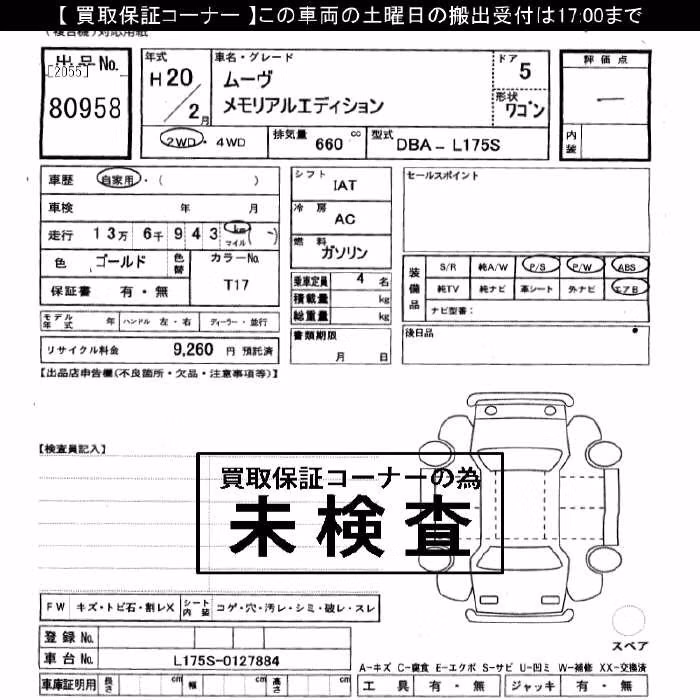 【 買取保証コーナー 】この車両の土曜日の搬出受付は17:00まで
(複合機)対応用紙
出品No.
[2055]
80958
年式
H20/2月
車名・グレード
ムーヴ
メモリアルエディション
ドア
5
形状
ワゴン
評価点
ー
内装
2WD・4WD
排気量 660 cc
型式 DBA-L175S
車歴 自家用・( )
車検 年 月
走行 13万 6千 943 km マイル ( )
色 ゴールド 色替
カラーNo. T17
保証書 有・無
シフト IAT
冷房 AC
燃料 ガソリン
乗車定員 4 名
積載量 kg
総重量 kg
書類期限
月 日
セールスポイント
装備品
S/R 純A/W P/S P/W ABS
純TV 純ナビ 革シート 外ナビ エアB
ナビ型番:
後日品
モデル年式 年 ハンドル 左・右 ディーラー・並行
リサイクル料金 9,260 円 預託済
【出品店申告欄(不良箇所・欠品・注意事項等)】
【検査員記入】
買取保証コーナーの為
未検査
FW キズ・トビ石・割レX
シート内装 コゲ・穴・汚レ・シミ・破レ・スレ
登録No.
車台No. L175S-0127884
車庫証明用 長さ cm 幅 cm 高さ cm
スペア
A-キズ C-腐食 E-エクボ S-サビ U-凹ミ W-補修 XX-交換済
工具 有・無 ジャッキ 有・無